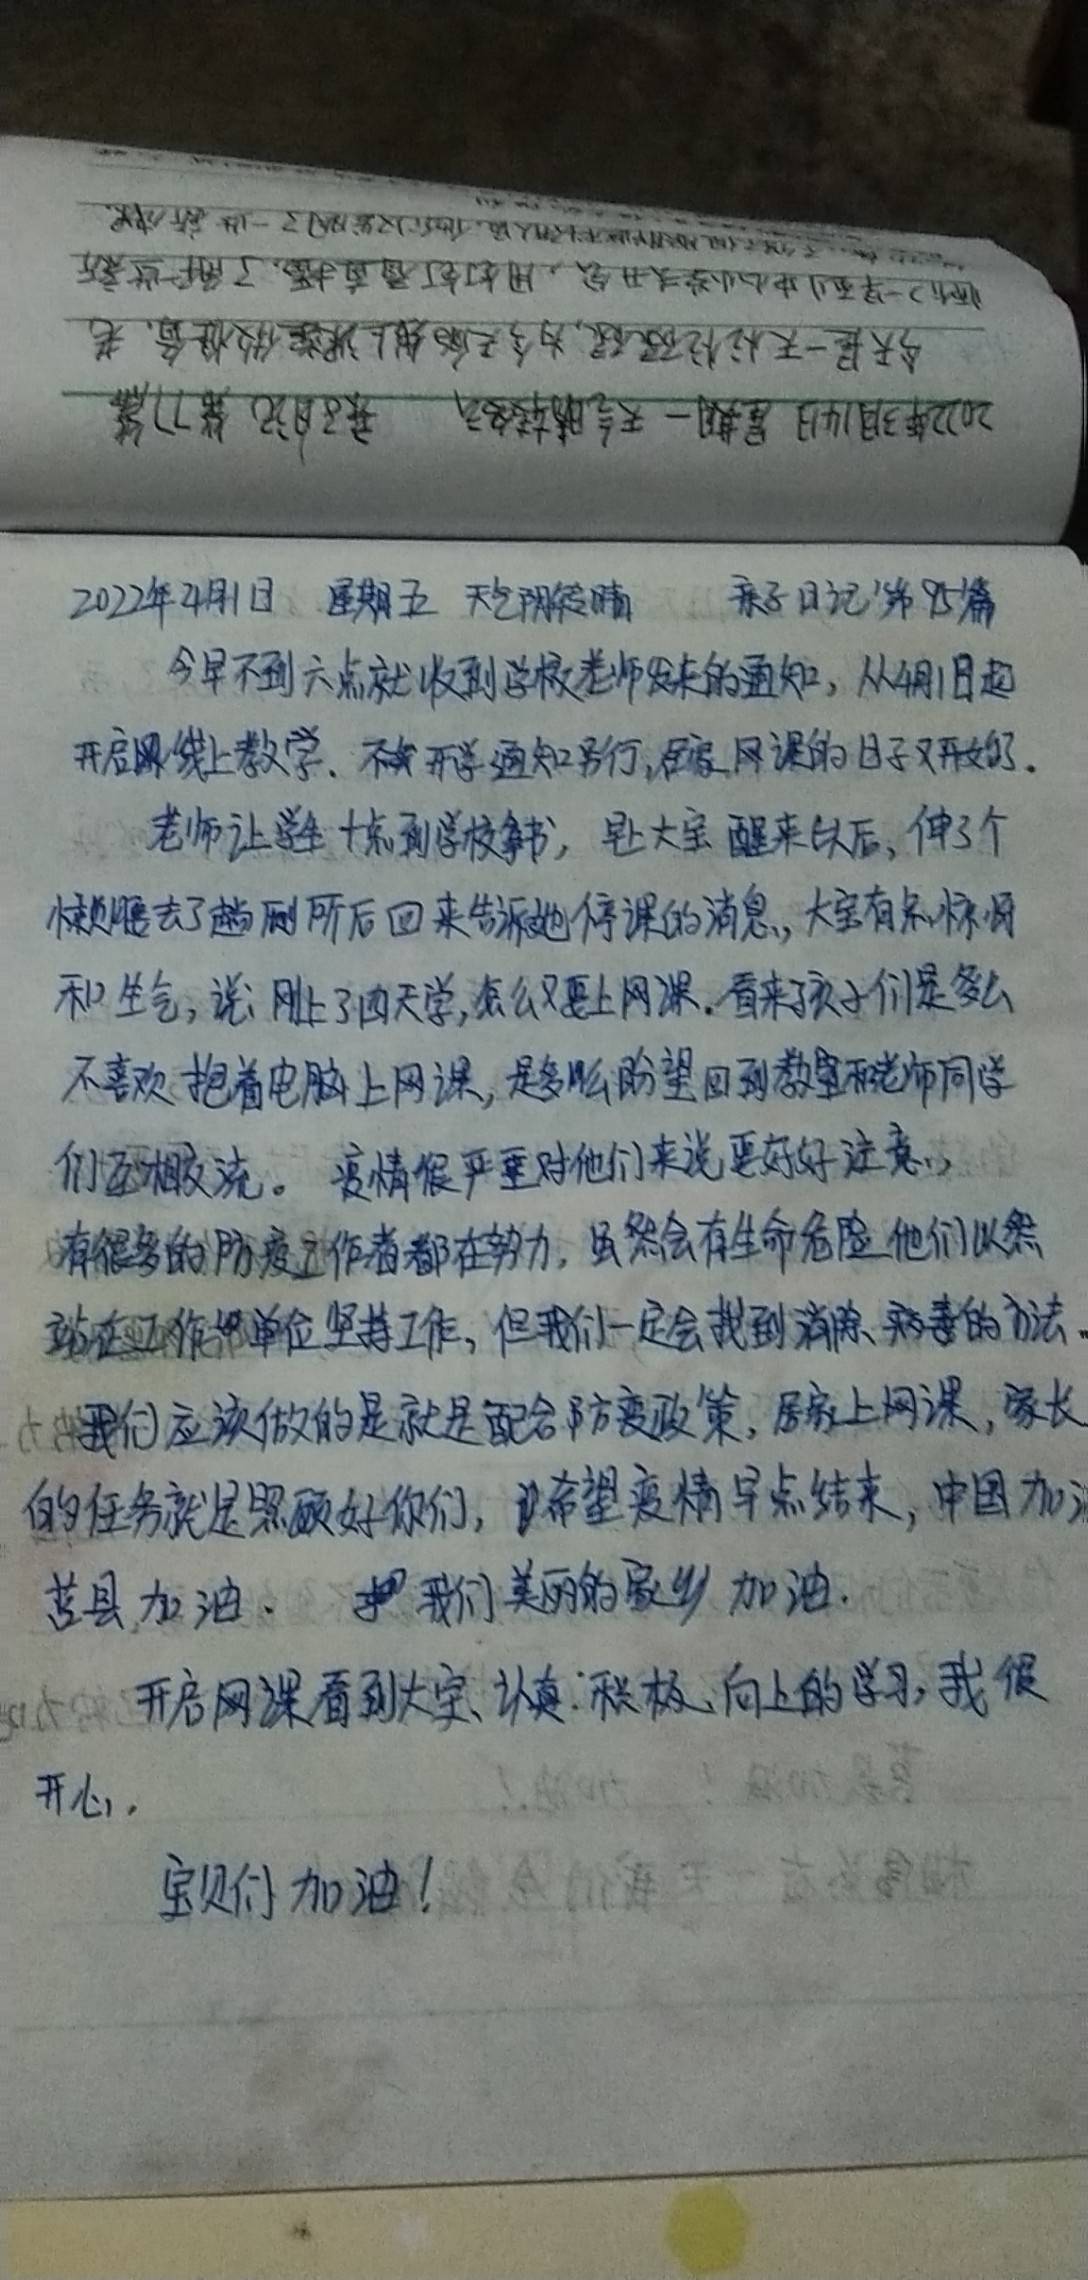 2022年3月14日 星期一 天气晴转多云 亲子日记 第77篇
今天是一天
2022年4月1日 星期五 天气阴转晴 亲子日记 第95篇
今早不到六点就收到学校老师发来的通知，从4月1日起
开启线上教学．开学通知另行，居家网课的日子又开始了．
老师让学生十点到学校拿书，早上大宝醒来以后，伸了个
懒腰去了趟厕所后回来告诉她停课的消息，大宝有点惊讶
和生气，说：刚上了四天学，怎么又要上网课．看来孩子们是多么
不喜欢抱着电脑上网课，是多么盼望回到教室和老师同学
们互相交流。疫情很严重对他们来说要好好注意，
有很多的防疫工作者都在努力，虽然会有生命危险他们以然
站在工作单位坚持工作，但我们一定会找到消除病毒的方法．
我们应该做的是就是配合防疫政策，居家上网课，家长
的任务就是照顾好你们，希望疫情早点结束，中国加油
莒县加油．我们美丽的家乡加油．
开启网课看到大宝、认真、积极、向上的学习，我很
开心，
宝贝们加油！